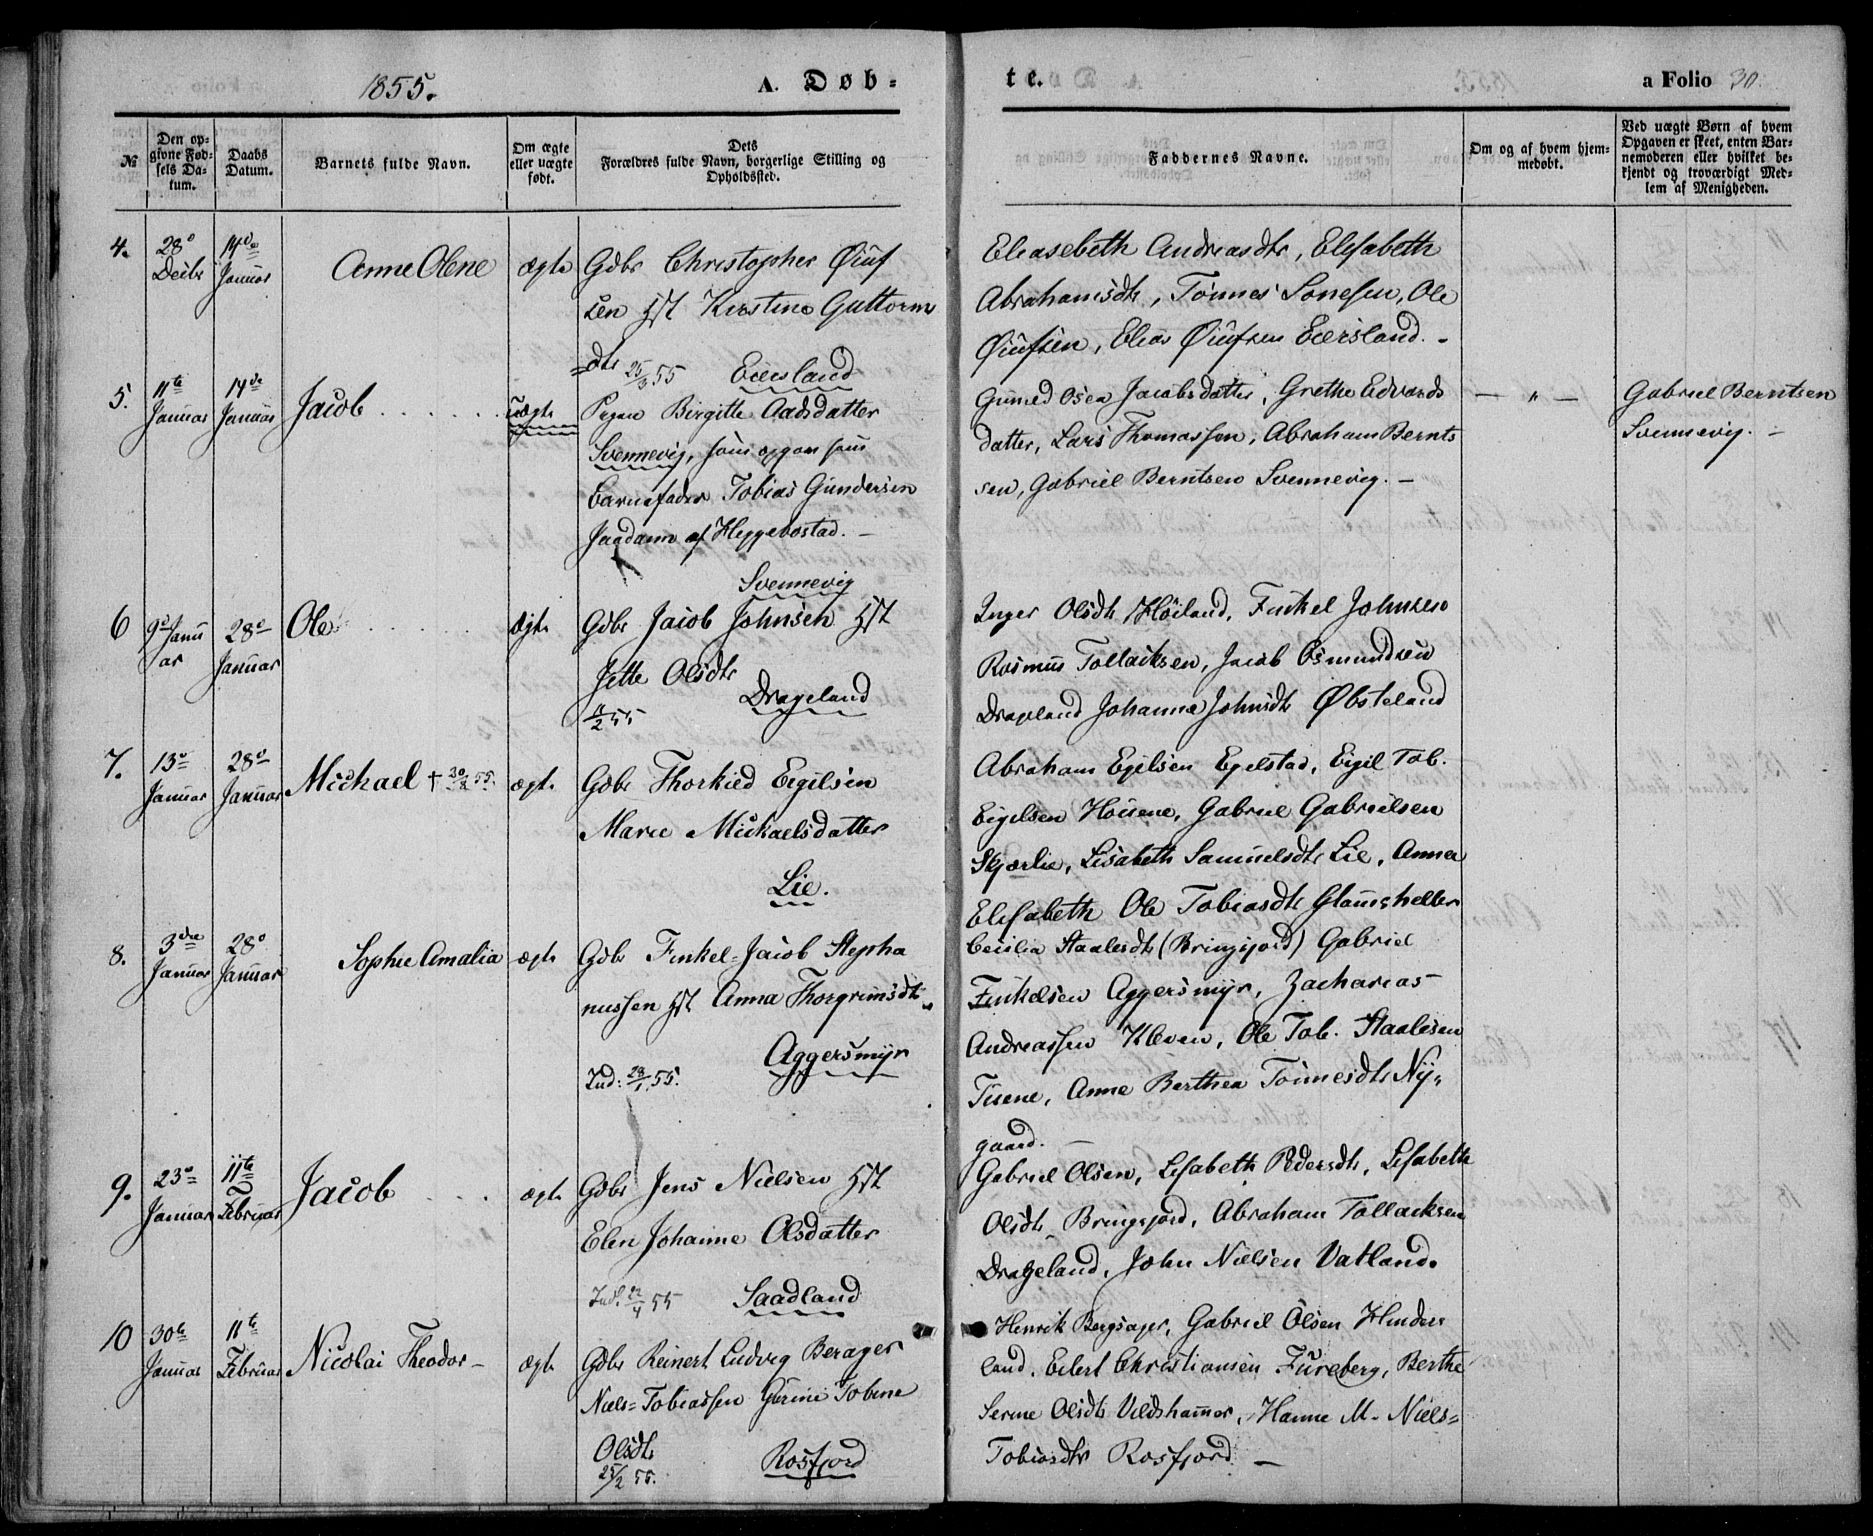 1855.
A. Døb-
te.
a Folio 30.
№
Den op-
givne Fød-
sels Da-
tum.
Daabs
Datum.
Barnets fulde Navn.
Om ægte
eller uægte
født.
Dets
Forældres fulde Navn, borgerlige Stilling og
Opholdssted.
Faddernes Navne.
Om og af hvem hjem-
medøbt.
Ved uægte Børn af hvem
Opgaven er skeet, enten Bar-
nemoderen eller hvilket be-
kjendt og troværdigt Med-
lem af Menigheden.
4.
28de
Decbr
14de
Januar
Anne Olene
ægte
Gdbr Christopher Øiuf
sen Hst Kirstine Guttorms
dtr 25/3 55 Eiersland
Eleasebeth Andreasdtr, Elisabeth
Abrahamsdtr, Tønnes Sonesen, Ole
Øiufsen, Elias Øiufsen Eiersland. -
5.
11te
Januar
14de
Januar
Jacob
uægte
Pigen Birgitte Aadsdatter
Svennevig, som opgav som
Barnefader Tobias Gundersen
af Heggebostad. -
Svennevig
Gunild Osea Jacobsdatter, Grethe Edvards
datter, Lars Thomassen, Abraham Bernts
sen, Gabriel Berntsen Svennevig. -
— " —
Gabriel Berntsen
Svennevig. -
6
9de Janu
ar
28de
Januar
Ole
Ægte
Gdbr Jacob Johnsen Hst
Jette Olsdtr
Drageland
11/2 55
Inger Olsdtr Høiland, Finkel Johnsen
Rasmus Tollacksen, Jacob Osmundsen
Drageland Johanne Johnsdtr Øbsteland
7.
13de
Januar
28de
Januar
Mickael † 20/2 55.
ægte
Gdbr Thorkied Eigilsen
Marie Mickaelsdatter
Lie.
Abraham Egelsen Egelstad, Eigil Tob.
Eigelsen Houene, Gabriel Gabrielsen
Skjærlie, Lisabeth Samuelsdtr Lie, Anna
Elisabeth Ole Tobiasdtr Glamsheller
8.
3die
Januar
28de
Januar
Sophie Amalia
ægte
Gdbr Finkel-Jacob Stepha
nussen Hst Anna Thorgrimsdtr
Aggersmyr
Ind: 28/1 55.
Cecilia Staalesdtr (Bringsjord) Gabriel
Finkelsen Aggersmyr, Zacharias
Andreassen Kleven, Ole Tob. Staalesen
Tisene, Anne Berthea Tønnesdtr Ny-
gaard. -
9.
23de
Januar
11te
Februar
Jacob
ægte
Gdbr Jens Nielsen Hst
Elen Johanne Olsdatter
Indl. 22/4 55 Saadland
Gabriel Olsen, Lisabeth Pedersdtr, Lisabeth
Olsdtr Bringsjord, Abraham Tollacksen
Drageland, John Nielsen Vatland.
10
30te
Januar
11te
Februar
Nicolai Theodor -
ægte
Gdbr Reinert Ludvig Berager
Niels-Tobiassen Gurine Tobine
Olsdtr
25/2 55. Rosfjord
Henrik Bergsager, Gabriel Olsen Hinders
land, Eilert Christiansen Fureberg, Berthe
Serine Olsdtr Udshammer, Hanne M. Niels=
Tobiasdtr Rosfjord. -